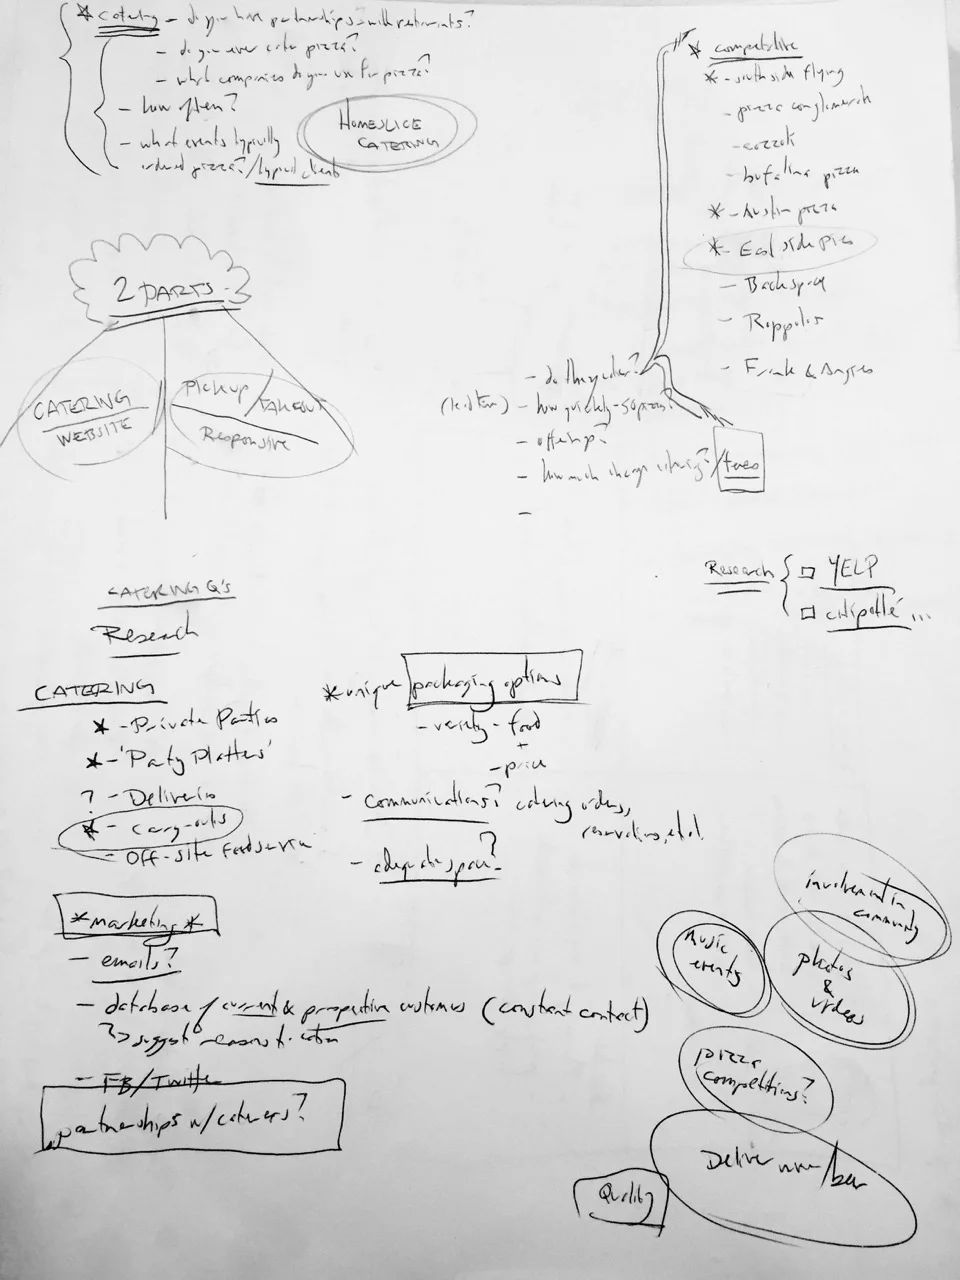 * catering - do you have partnerships with restaurants?
- do you ever cater pizza?
- what companies do you use for pizza?
- how often?
- what events typically
ordered pizza? / typical clients
HOMESLICE
CATERING
* competitive
* - southside flying
- pizza conglomerch
- cozzoli
- bufalina pizza
* - Austin pizza
* - East side pies
- Backspace
- Roppolos
- Frank & Angies
2 PARTS
CATERING
WEBSITE
Pickup / TAKEOUT
Responsive
- do they cater?
(lead time) - how quickly -
- offering?
- how much charge catering? / fees
-
Research { □ YELP
□ chipotlé ...
CATERING Q's
Research
CATERING
* - Private Parties
* - 'Party Platters'
? - Deliveries
* - Carry-outs
- Off-site foodservice
* unique packaging options
- variety - food
+
- price
- communications? catering orders,
reservations, etc.
- adequate space?
* marketing *
- emails?
- database of current & prospective customers (constant contact)
? > suggest reasons to cater
- FB/Twitter
partnerships w/ caterers?
involvement in
community
music
events
photos
&
videos
pizza
competitions?
Deliver
Quality